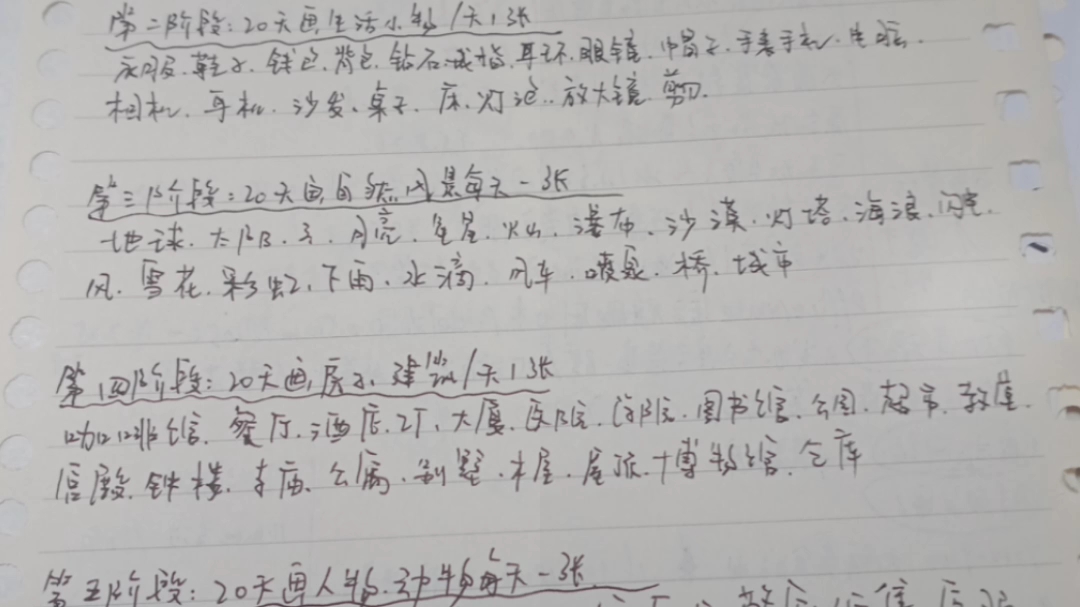 第二阶段：20天画生活小物/天1张
衣服、鞋子、钱包、背包、钻石、戒指、耳环、眼镜、帽子、手表手机、电脑、
相机、耳机、沙发、桌子、床、灯泡、放大镜、剪刀、
第三阶段：20天画自然风景每天一张
地球、太阳、云、月亮、星星、火山、瀑布、沙漠、灯塔、海浪、闪电、
风、雪花、彩虹、下雨、水滴、风车、喷泉、桥、城市
第四阶段：20天画房子、建筑/天1张
咖啡馆、餐厅、酒店、工厂、大厦、医院、法院、图书馆、公园、超市、教堂、
宫殿、钟楼、寺庙、公寓、别墅、木屋、屋顶、博物馆、仓库
第五阶段：20天画人物、动物每天一张